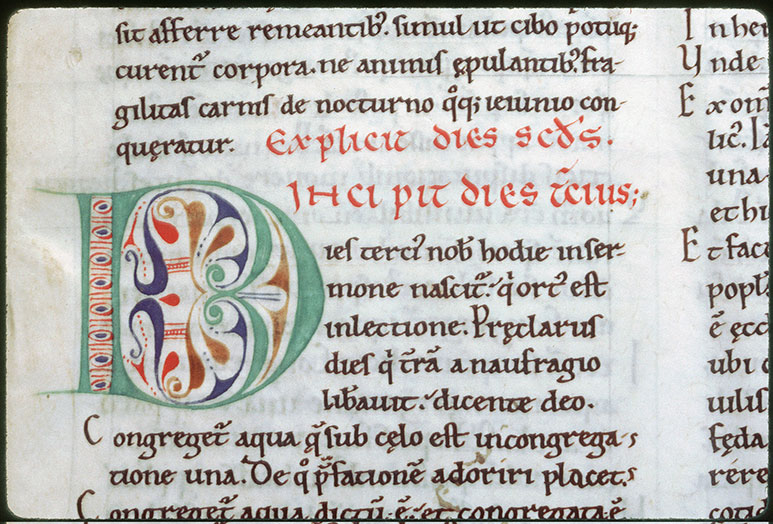 sit afferre remeantib;. simul ut cibo potuq;
curent᷑ corpora. ne animis ępulantib; fra-
gilitas carnis de nocturno q̊q; ieiunio con-
quęratur. Explicit dies scd̄s.
Incipit dies t̄cius;
Dies terci᷒ nob̄ hodie in ser-
mone nascit᷑. qͥ ort᷒ est
in lectione. Pręclarus
dies qͥ t̄rā a naufragio
lib̄auit. dicente deo.
Congreget᷑ aqua q̄ sub cęlo est in congrega-
tione una. De q̊ p̄fatione adoriri placet.
Congreget᷑ aqua. dictū. ē. et congregata. ē.
In
Ynde
Ex om̄
lic̄.
una
et hu
Et fact
popl̄
ē ęcc
ubi c
uilis
fęda
rere